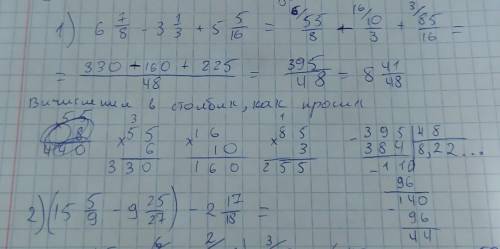 1) 6 7/8 - 3 1/3 + 5 5/16 = 6/ 55/8 - 16/ 10/3 + 3/ 85/16 =
= (330 - 160 + 225)/48 = 395/48 = 8 41/48
Вычисления в столбик, как просили
55 8 440
3 ×55 6 330
×16 10 160
1 ×85 3 255
-395 | 48
384 | 8,22...
-110
96
-140
96
44
2) (15 5/9 - 9 25/27) - 2 17/18 =
6/ 2/ 3/